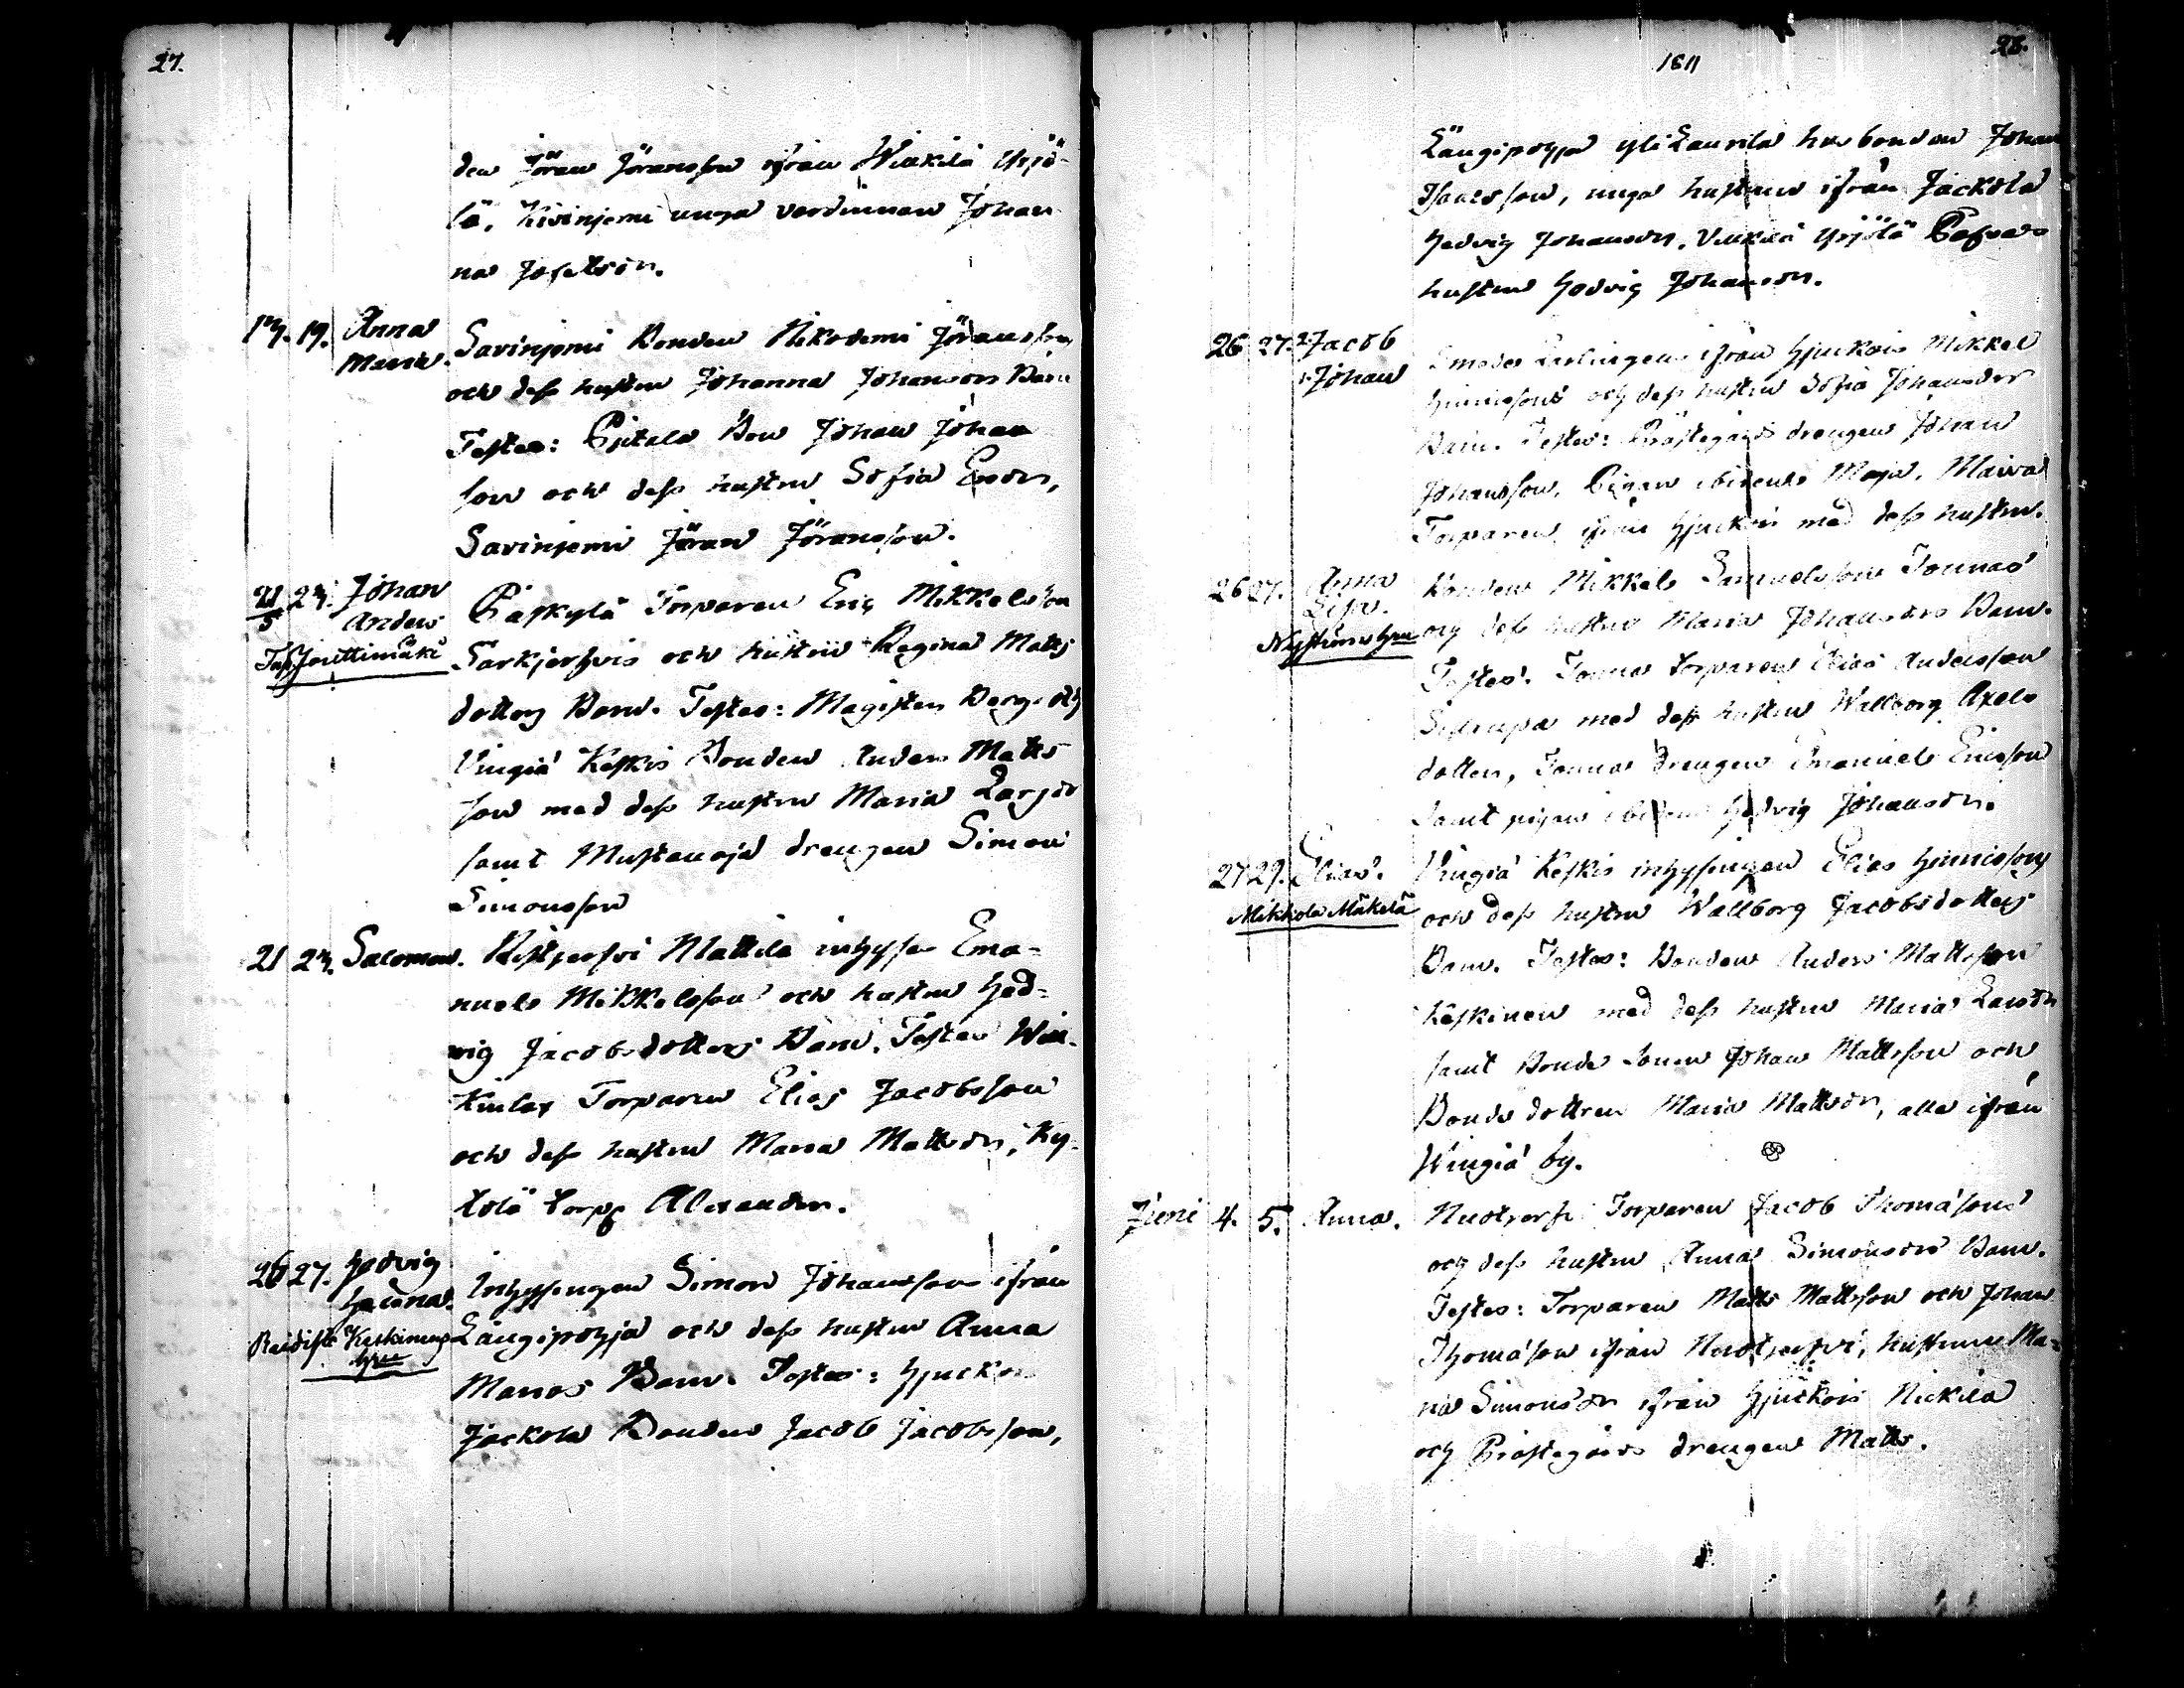 27.
den Jöran Jöransson ifrån Winkilä Yrjö-
lä, Kivinjemi unga värdinnan Johan
na Josefsdr.
17. 19. Anna Maria. Savinjemi Bonden Nikodemi Jöransson
och dess hustru Johanna Johansdrs Barn
Testes: Pjetala Bon Johan Johan
son och dess hustru Sofia Ersdr,
Savinjemi Jöran Jöransson.
21/5 23. Johan Anders Päskylä Torparen Eric Mikkelsson
Jouttimäki Sarkjerfvis och hustru Regina Matts
dotters Barn. Testes: Magister Berg och
Vingiä Keskis Bonden Anders Matts
son med dess hustru Maria Larsdr
samt Mustanoja drengen Simon
Simonsson
21 23. Salomon. Ristjerfvi Mattila inhyse Ema-
nuels Mikkelsson och hustru Hed-
vig Jacobsdotters Barn. Testes
Torparen Elias Jacobsson
och dess hustru Maria Mattsdr, Ky-
tölä torp Alexander.
26 27. Hedvig Helena. Inhysingen Simon Johansson ifrån
Keskinens Längipohja och dess hustru Anna
Marias Barn. Testes: Hjuckois
Jäckola Bonden Jacob Jacobsson,
1811
28.
Längipohja yli Laurila husbonden Johan
Isacsson, unga hustrun ifrån Jäckola
Hedvig Johansdr. Yrjölä
hustru Hedvig Johansdr.
26 27. 2. Jacob 1. Johan Smeds Lärlingens ifrån Hjuckois Mikkel
Hinricsons och dess hustru Sofia Johansdrs
Barn. Testes: Prästegårds drengen Johan
Johansson, Pigan ibidem Maja.
Torparen ifrån Hjuckois med dess hustru.
26 27. Anna Lisa. Bonden Mikkels Samuelsson Tounas
Nyströms fru och dess hustru Maria Johansdrs Barn.
Testes. Touna torparen Elias Andersson
med dess hustru Wallborg Axels
dotter, Touna drengen Emanuel Ericsson
samt pigan ibidem Hedvig Johansdr.
27 29. Elias. Vingiä Keskis inhysingen Elias Hinricsons
Mikkola Mäkelä och dess hustru Wallborg Jacobsdotters
Barn. Testes: Bonden Anders Mattsson
Keskinen med dess hustru Maria Larsdr
samt Bonde sonen Johan Mattsson och
Bonde dottren Maria Mattsdr, alla ifrån
Wingiä by.
Juni 4. 5. Anna. Torparen Jacob Thomasons
och dess hustru Anna Simonsdrs Barn.
Testes: Torparen Matts Mattsson och Johan
Thomason ifrån hustrun Ma-
ria Simonsdr ifrån Hjuckois Nickilä
och Prästegårds drengen Matts.